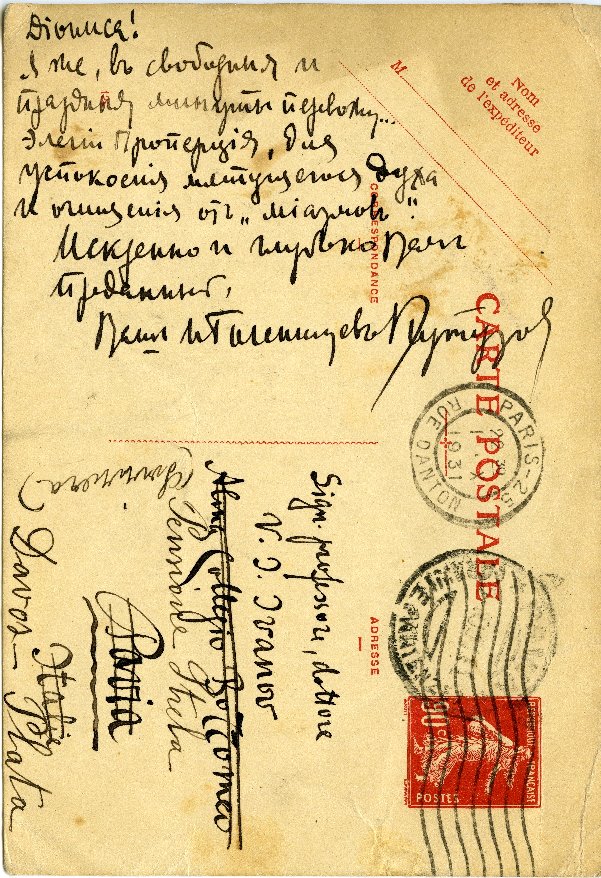 Діониса!
Я же, въ свободныя и
праздныя минуты перевожу...
Элегіи Проперція, для
успокоенія мятущегося духа
и очищенія отъ „міазмовъ“.
Искренно и глубоко Вамъ
преданный,
Вашъ И. Голенищевъ-Кутузов
M
Nom
et adresse
de l'expéditeur
CORRESPONDANCE
CARTE POSTALE
PARIS-25
RUE DANTON
1931
ADRESSE
Sign. professore, dottore
V. I. Ivanov
Almo Collegio Borromeo
Pensione Stela
Pavia
Italie
(Svizzera)
Davos-Platz
RÉPUBLIQUE FRANÇAISE
POSTES